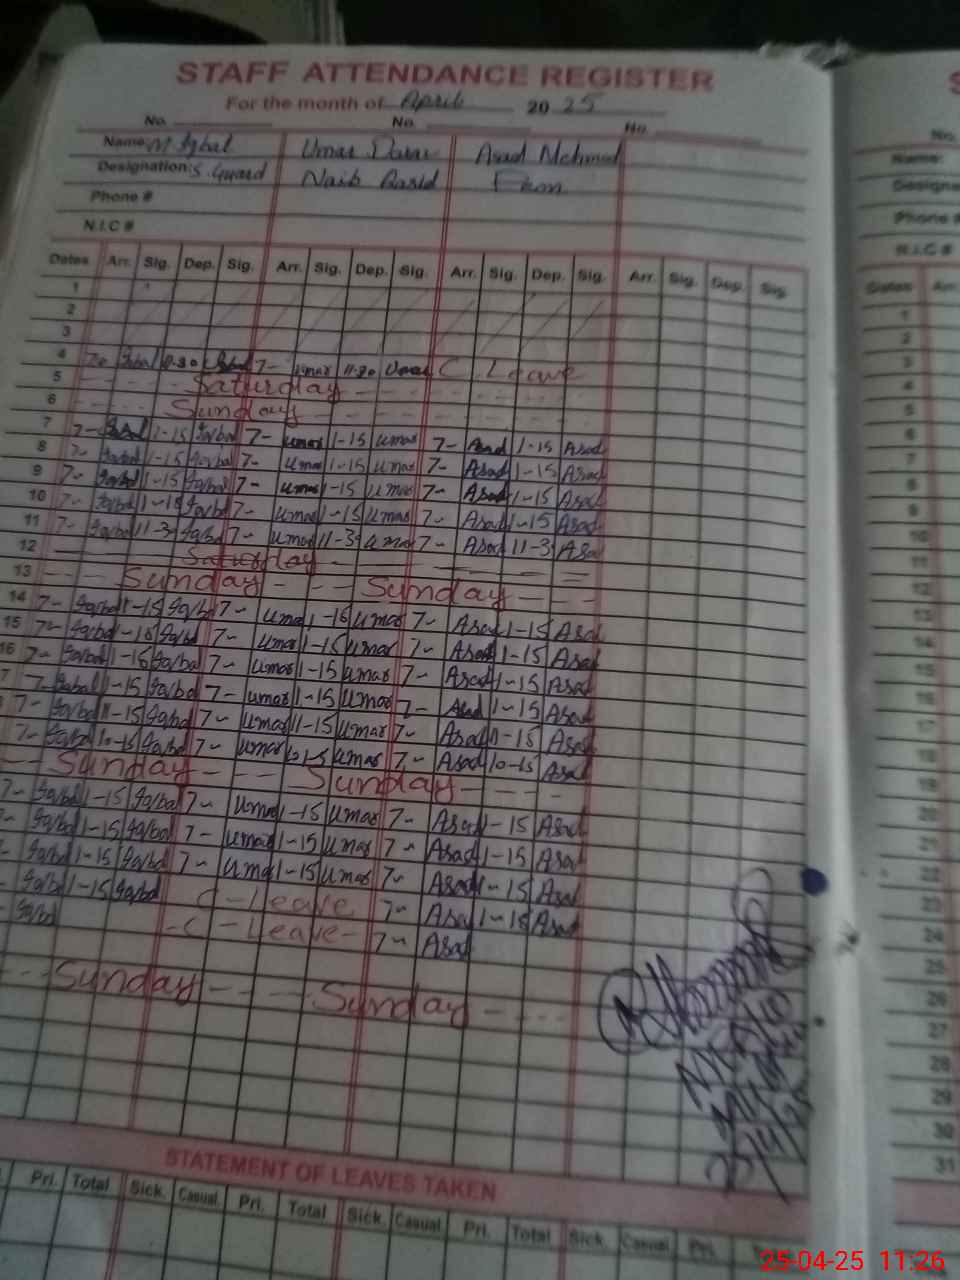 STAFF ATTENDANCE REGISTER
For the month of April 2025
No. No. No.
Name: M Iqbal Umar Asad Mehmod
Designation: S. Guard Naib
Phone #
N.I.C #
Dates Arr. Sig. Dep. Sig. Arr. Sig. Dep. Sig. Arr. Sig. Dep. Sig. Arr. Sig. Dep. Sig.
1
2
3
4 Iqbal 7- umar 11-30 Umar C Leave
5 Saturday
6 Sunday
7 7- Iqbal 1-15 Iqbal 7- umar 1-15 umar 7- Asad 1-15 Asad
8 7- Iqbal 1-15 Iqbal 7- umar 1-15 umar 7- Asad 1-15 Asad
9 7- Iqbal 1-15 Iqbal 7- umar 1-15 umar 7- Asad 1-15 Asad
10 7- Iqbal 1-15 Iqbal 7- umar 1-15 umar 7- Asad 1-15 Asad
11 7- Iqbal 11-3 Iqbal 7- umar 11-3 umar 7- Asad 11-3 Asad
12 Saturday
13 Sunday Sunday
14 7- Iqbal 1-15 Iqbal 7- umar 1-15 umar 7- Asad 1-15 Asad
15 7- Iqbal 1-15 Iqbal 7- umar 1-15 umar 7- Asad 1-15 Asad
16 7- Iqbal 1-15 Iqbal 7- umar 1-15 umar 7- Asad 1-15 Asad
7 7- Iqbal 1-15 Iqbal 7- umar 1-15 umar 7- Asad 1-15 Asad
7- Iqbal 11-15 Iqbal 7- umar 11-15 umar 7- Asad 11-15 Asad
7- Iqbal 10-15 Iqbal 7- umar umar 7- Asad 10-15 Asad
Sunday Sunday
7- Iqbal 1-15 Iqbal 7- umar 1-15 umar 7- Asad 1-15 Asad
Iqbal 1-15 Iqbal 7- umar 1-15 umar 7- Asad 1-15 Asad
Iqbal 1-15 Iqbal 7- umar 1-15 umar 7- Asad 1-15 Asad
Iqbal 1-15 Iqbal C-Leave 7- Asad 1-15 Asad
Iqbal -C-Leave- 7- Asad
Sunday Sunday
STATEMENT OF LEAVES TAKEN
Pri. Total Sick. Casual. Pri. Total Sick. Casual. Pri. Total Sick. Casual. Pri.
No.
Name:
Phone #
N.I.C #
Dates
1
2
3
4
5
6
7
8
9
10
11
12
13
14
15
16
17
18
19
20
21
22
23
24
25
26
27
28
29
30
31
25-04-25 11:26